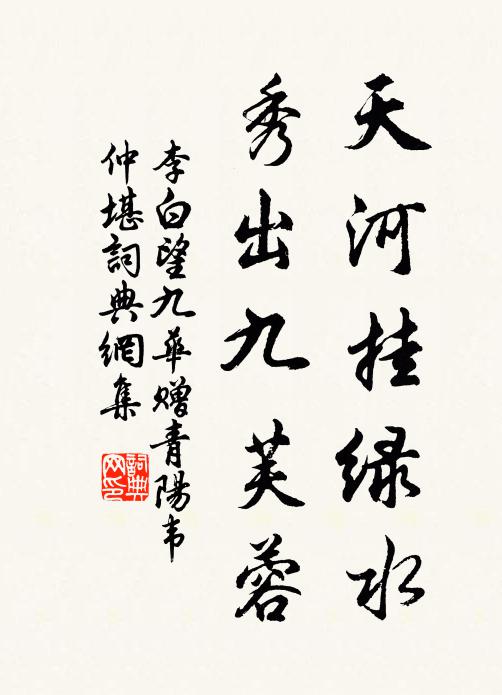 天河挂绿水
秀出九芙蓉
李白望九華赠青陽韦
仲堪詞典網集
詞典网印